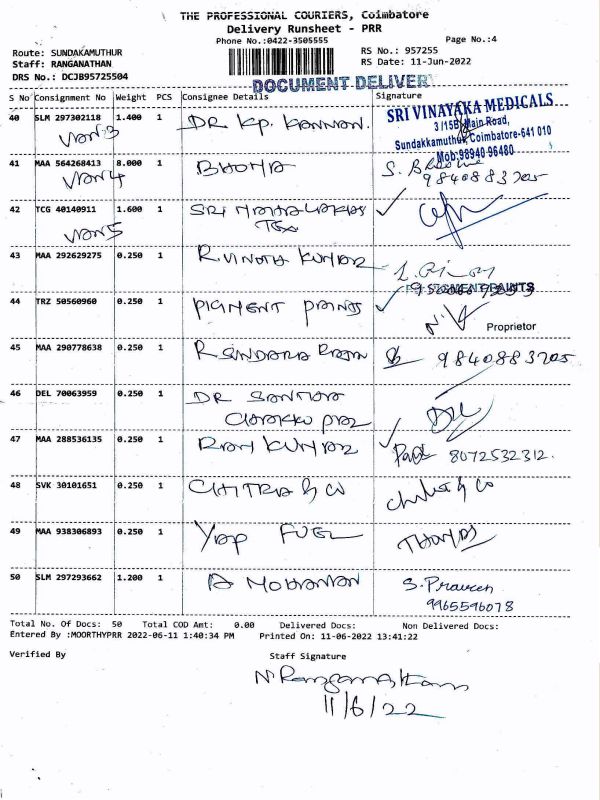 THE PROFESSIONAL COURIERS, Coimbatore
Delivery Runsheet - PRR
Phone No.:0422-3505555
Page No.:4
Route: SUNDAKAMUTHUR
RS No.: 957255
Staff: RANGANATHAN
RS Date: 11-Jun-2022
DRS No.: DCJB95725504
DOCUMENT DELIVERY
S No Consignment No Weight PCS Consignee Details Signature
40 SLM 297302118 1.400 1 DR KP. KANNAN.
SRI VINAYAKA MEDICALS
3/15B, Main Road,
Sundakkamuthur, Coimbatore-641 010
Mob:98940 96480
41 MAA 564268413 8.000 1
9840883705
42 TCG 40140911 1.600 1 SRI MAHALAKSHMI TEX
43 MAA 292629275 0.250 1 R. VINOTH KUMAR
44 TRZ 50560960 0.250 1 PIGMENT PAINTS
PIGMENT PAINTS
Proprietor
45 MAA 290778638 0.250 1 R SUNDARA RAJAN 9840883705
46 DEL 70063959 0.250 1 DR
47 MAA 288536135 0.250 1 RAM KUMAR 8072532312.
48 SVK 30101651 0.250 1 CHITRA & CO Chitra & Co
49 MAA 938306893 0.250 1 FUEL
50 SLM 297293662 1.200 1 A MOHANAN S. Praveen
9965596078
Total No. Of Docs: 50 Total COD Amt: 0.00 Delivered Docs: Non Delivered Docs:
Entered By :MOORTHYPRR 2022-06-11 1:40:34 PM Printed On: 11-06-2022 13:41:22
Verified By Staff Signature
N Ranganathan
11/6/22